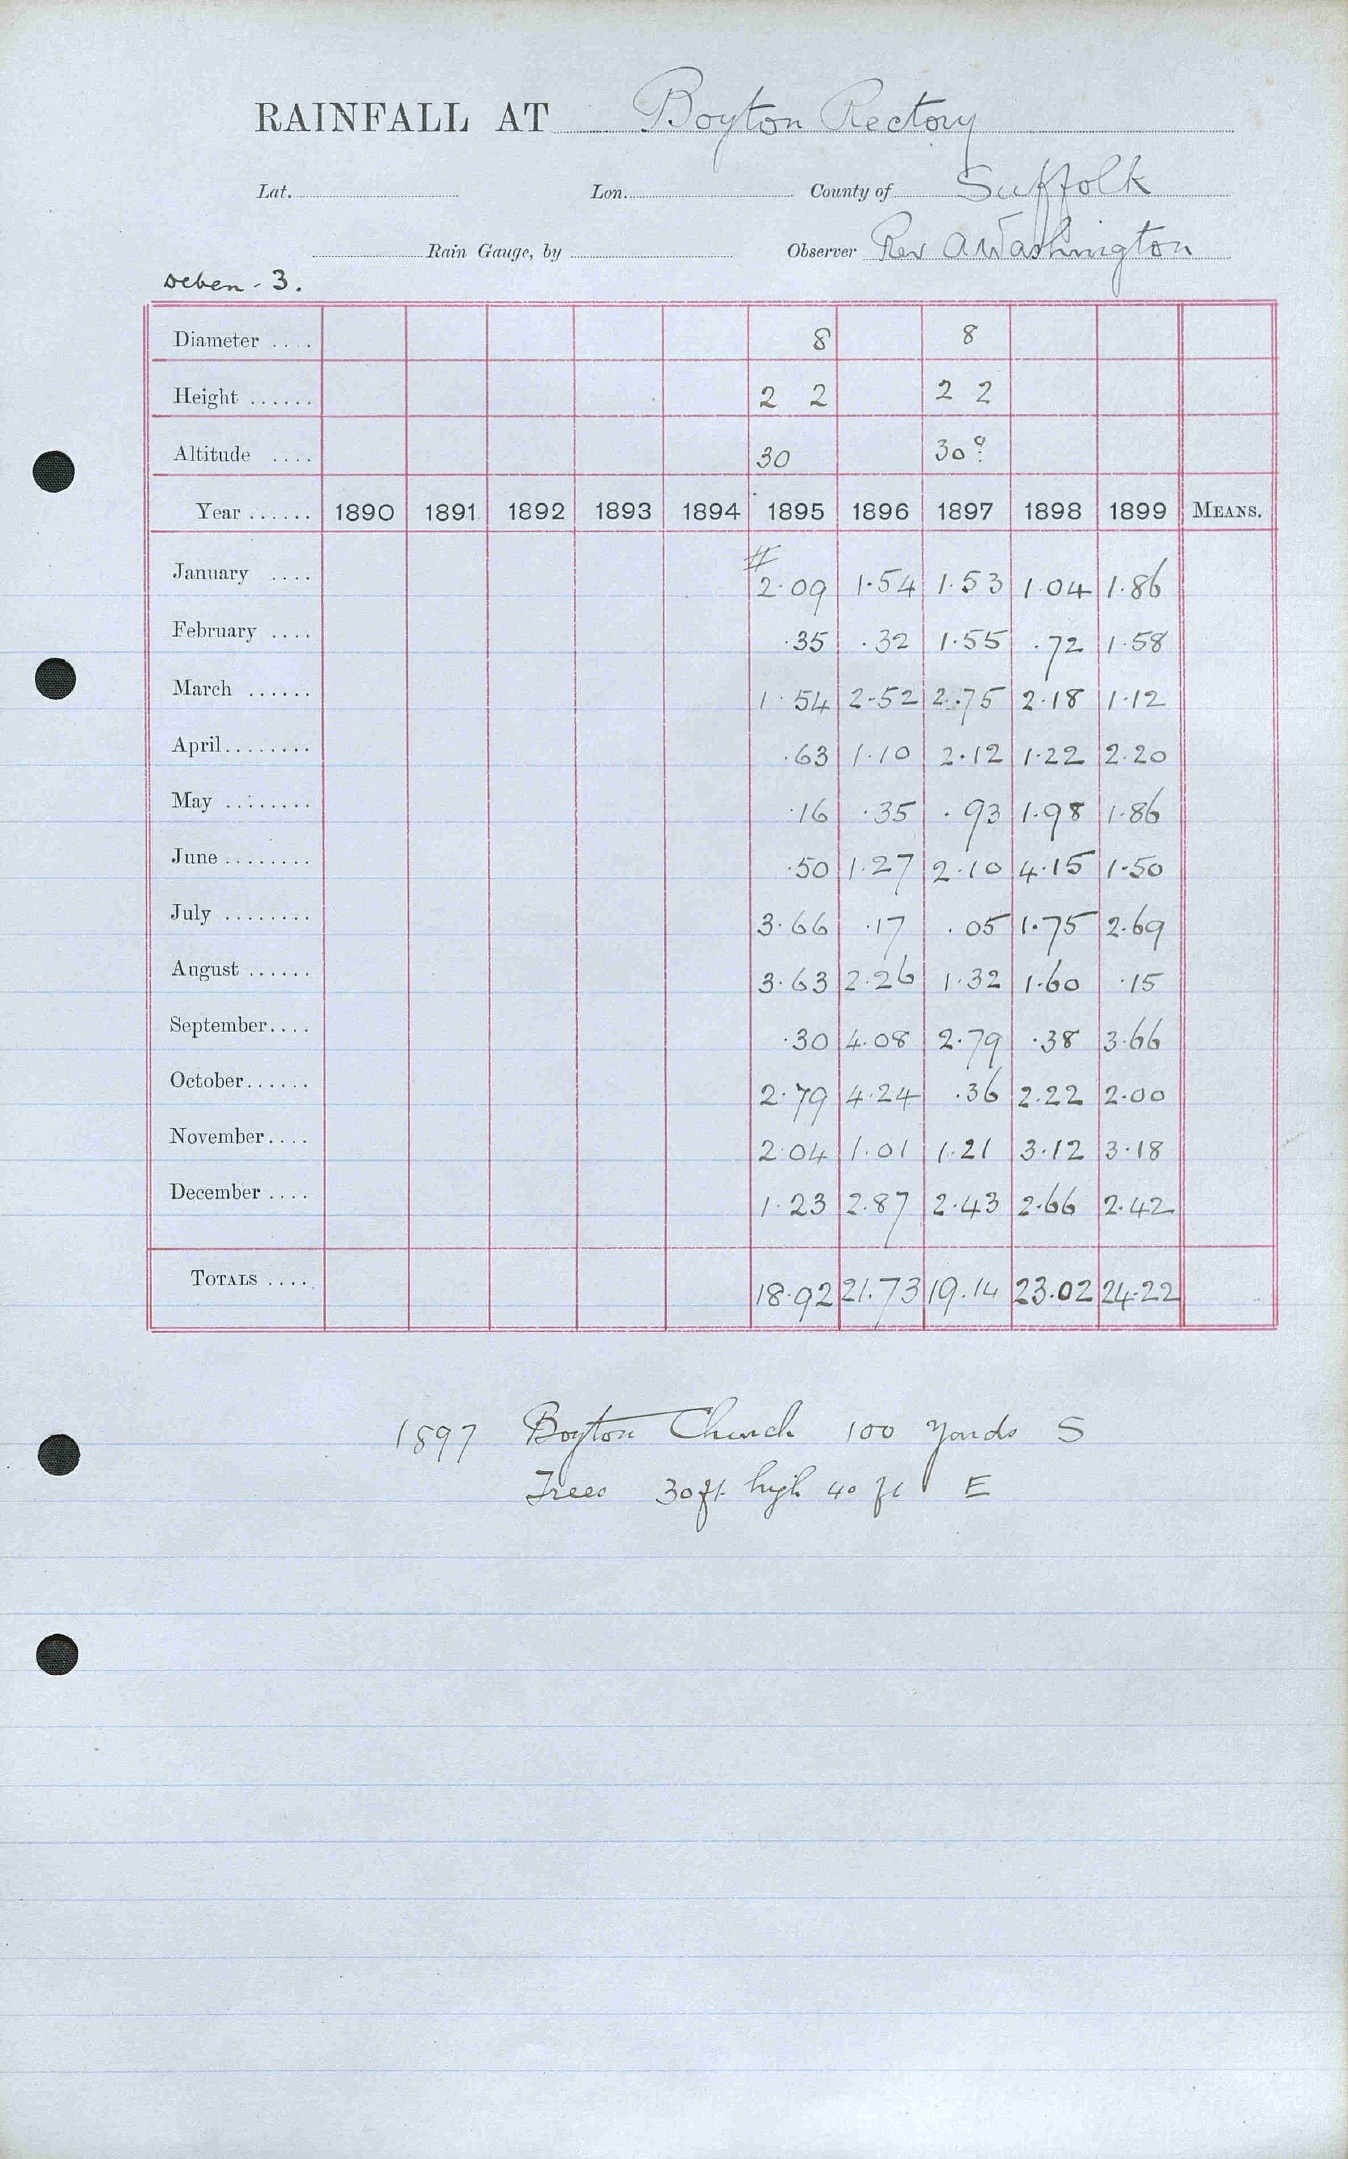 RAINFALL AT Boyton Rectory
Lat. Lon. County of Suffolk
Rain Gauge, by Observer Rev A Washington
Deben - 3.
Diameter .... 8 8
Height ...... 2 2 2 2
Altitude .... 30 30?
Year ...... 1890 1891 1892 1893 1894 1895 1896 1897 1898 1899 MEANS.
#
January .... 2.09 1.54 1.53 1.04 1.86
February .... .35 .32 1.55 .72 1.58
March ...... 1.54 2.52 2.75 2.18 1.12
April........ .63 1.10 2.12 1.22 2.20
May ........ .16 .35 .93 1.98 1.86
June ........ .50 1.27 2.10 4.15 1.50
July ........ 3.66 .17 .05 1.75 2.69
August ...... 3.63 2.26 1.32 1.60 .15
September.... .30 4.08 2.79 .38 3.66
October...... 2.79 4.24 .36 2.22 2.00
November.... 2.04 1.01 1.21 3.12 3.18
December .... 1.23 2.87 2.43 2.66 2.42
TOTALS .... 18.92 21.73 19.14 23.02 24.22
1897 Boyton Church 100 yards S
Trees 30ft high 40 ft E